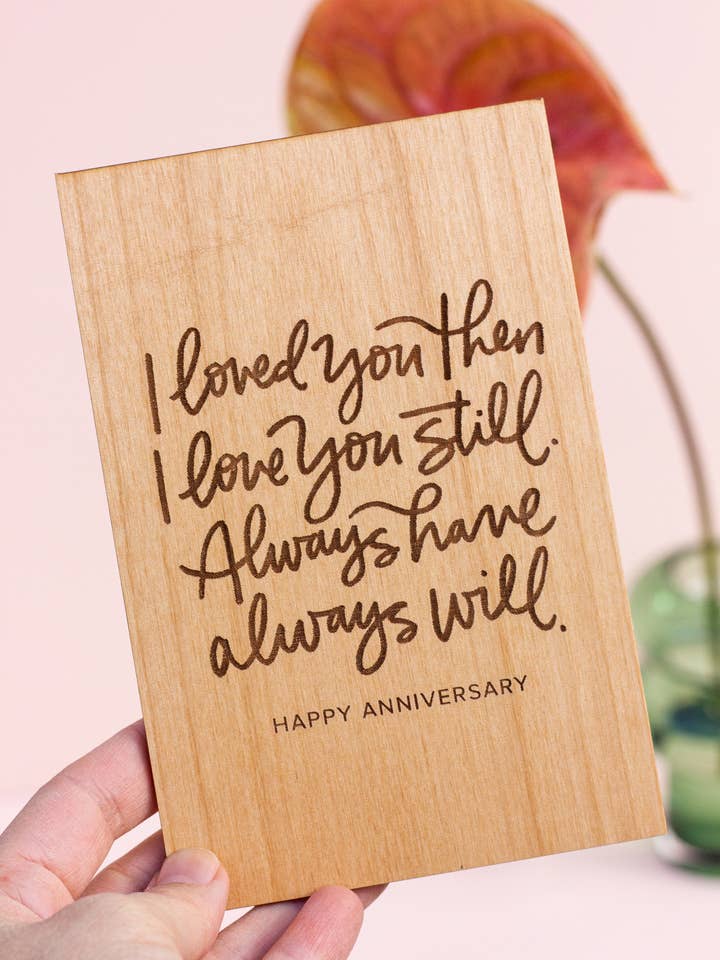 I loved you then
I love you still.
Always have
always will.
HAPPY ANNIVERSARY